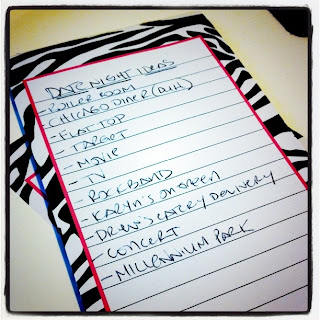 DATE NIGHT IDEAS
- BOILER ROOM
- CHICAGO DINER (BULL)
- FLAT TOP
- TARGET
- MOVIE
- TV
- ROCKBAND
- KARYN'S ON GREEN
- DREW'S EATRY DELIVERY
- CONCERT
- MILLENNIUM PARK